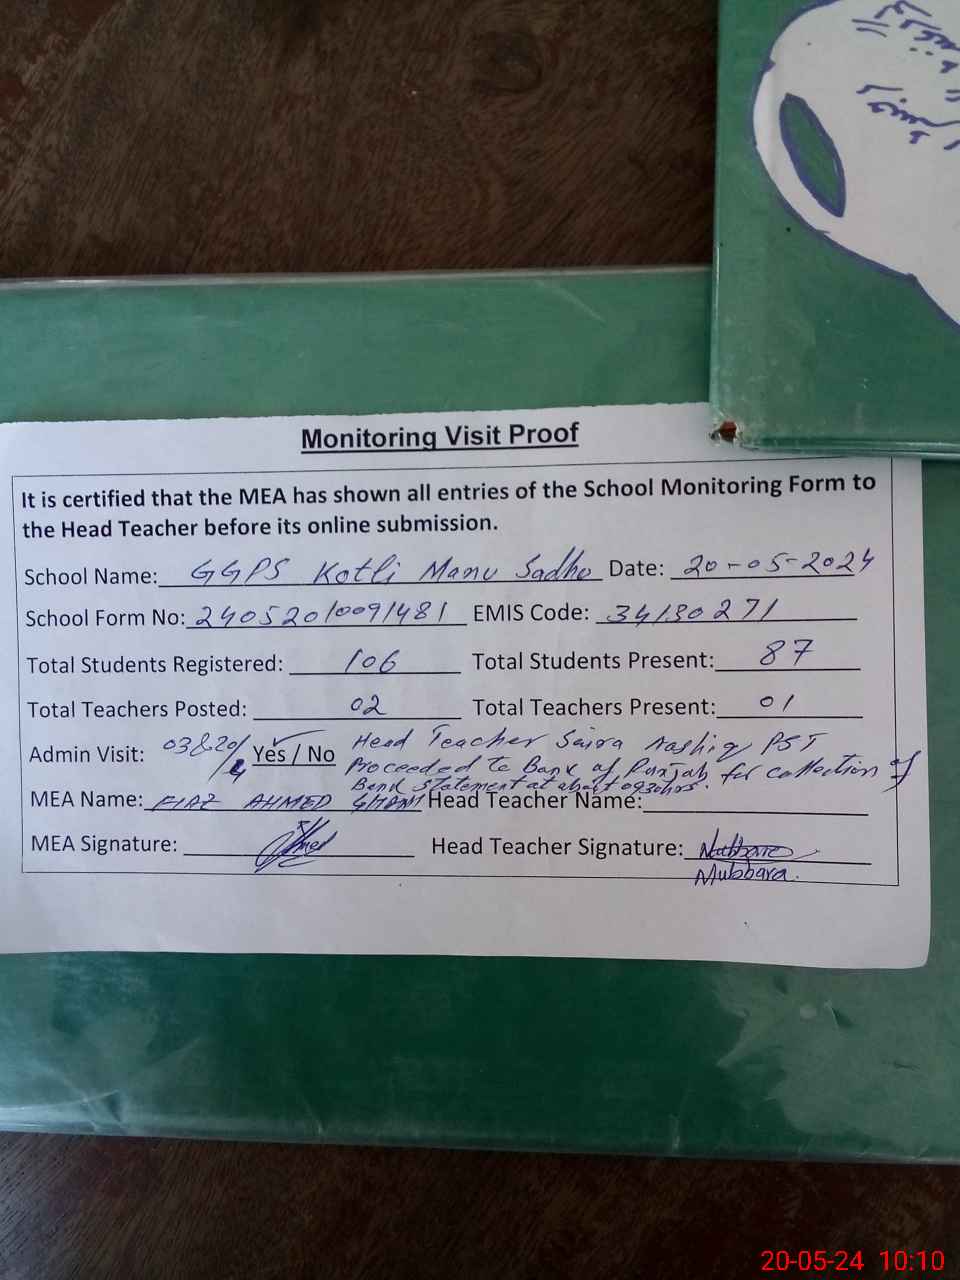 Monitoring Visit Proof
It is certified that the MEA has shown all entries of the School Monitoring Form to
the Head Teacher before its online submission.
School Name: GGPS Kotli Manu Sadho Date: 20-05-2024
School Form No: 24052010091481 EMIS Code: 34130271
Total Students Registered: 106 Total Students Present: 87
Total Teachers Posted: 02 Total Teachers Present: 01
Admin Visit: 03&20/4 Yes / No Head Teacher Saira Aashiq PST
Proceeded to Bank of Punjab for collection of
Bank statement at about 0930hrs.
MEA Name: FIAZ AHMED Head Teacher Name:
MEA Signature: Head Teacher Signature:
Mubbara.
20-05-24 10:10